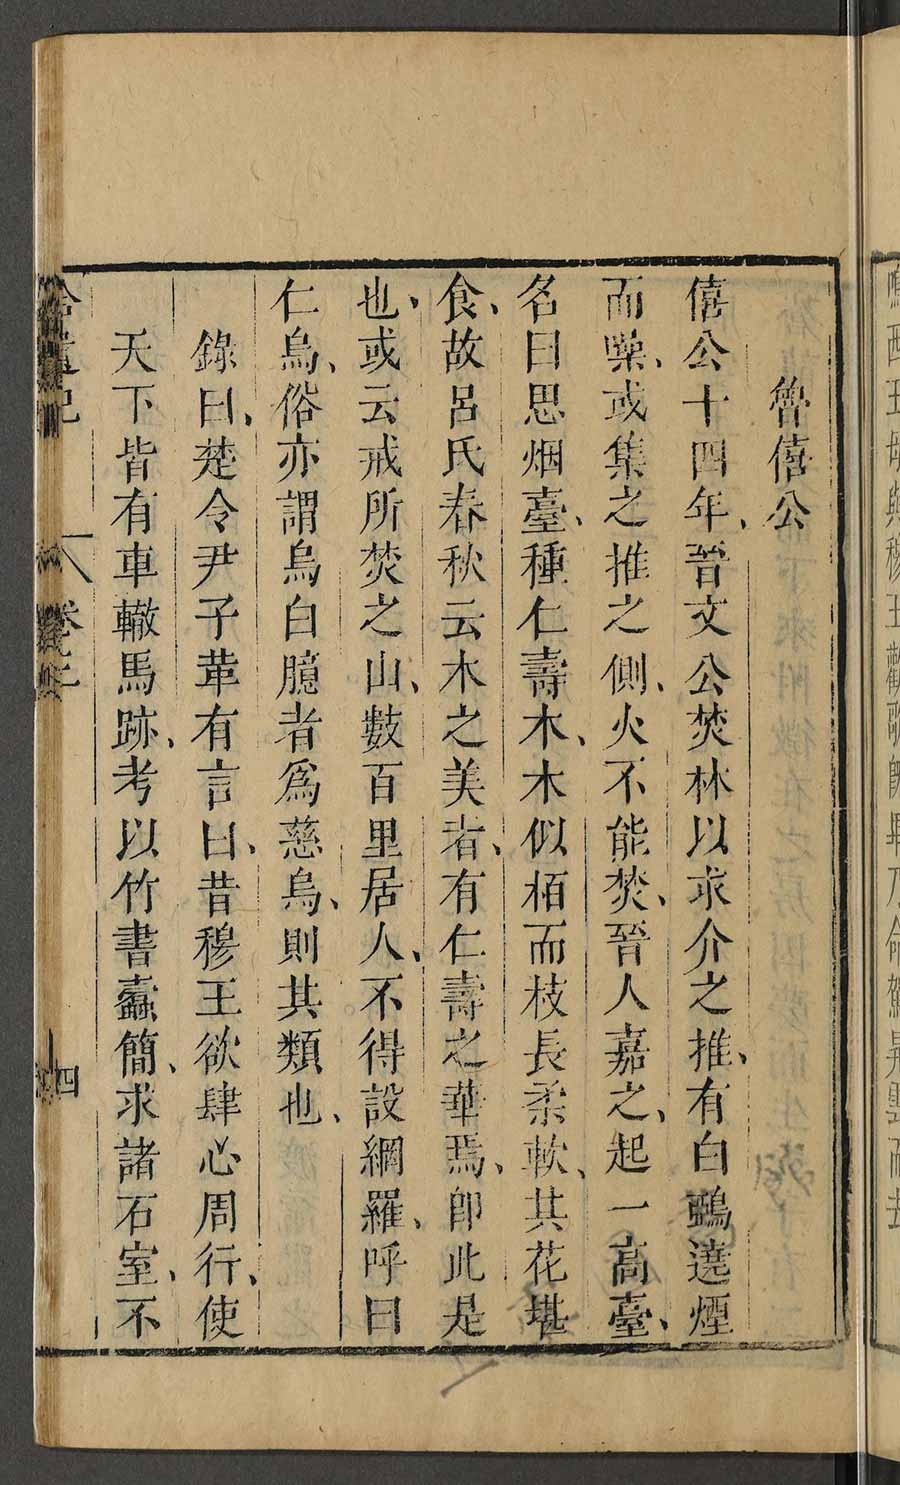 魯僖公
僖公十四年、晉文公焚林以求介之推、有白鵶遶煙
而噪、或集之推之側、火不能焚、晉人嘉之、起一高臺、
名曰思烟臺、種仁壽木、木似栢而枝長柔軟、其花堪
食、故呂氏春秋云木之美者、有仁壽之華焉、卽此是
也、或云戒所焚之山、數百里居人、不得設網羅、呼曰
仁烏、俗亦謂烏白臆者爲慈烏、則其類也、
錄曰、楚令尹子革有言曰、昔穆王欲肆心周行、使
天下皆有車轍馬跡、考以竹書蠹簡、求諸石室、不
拾遺記
卷之三
四